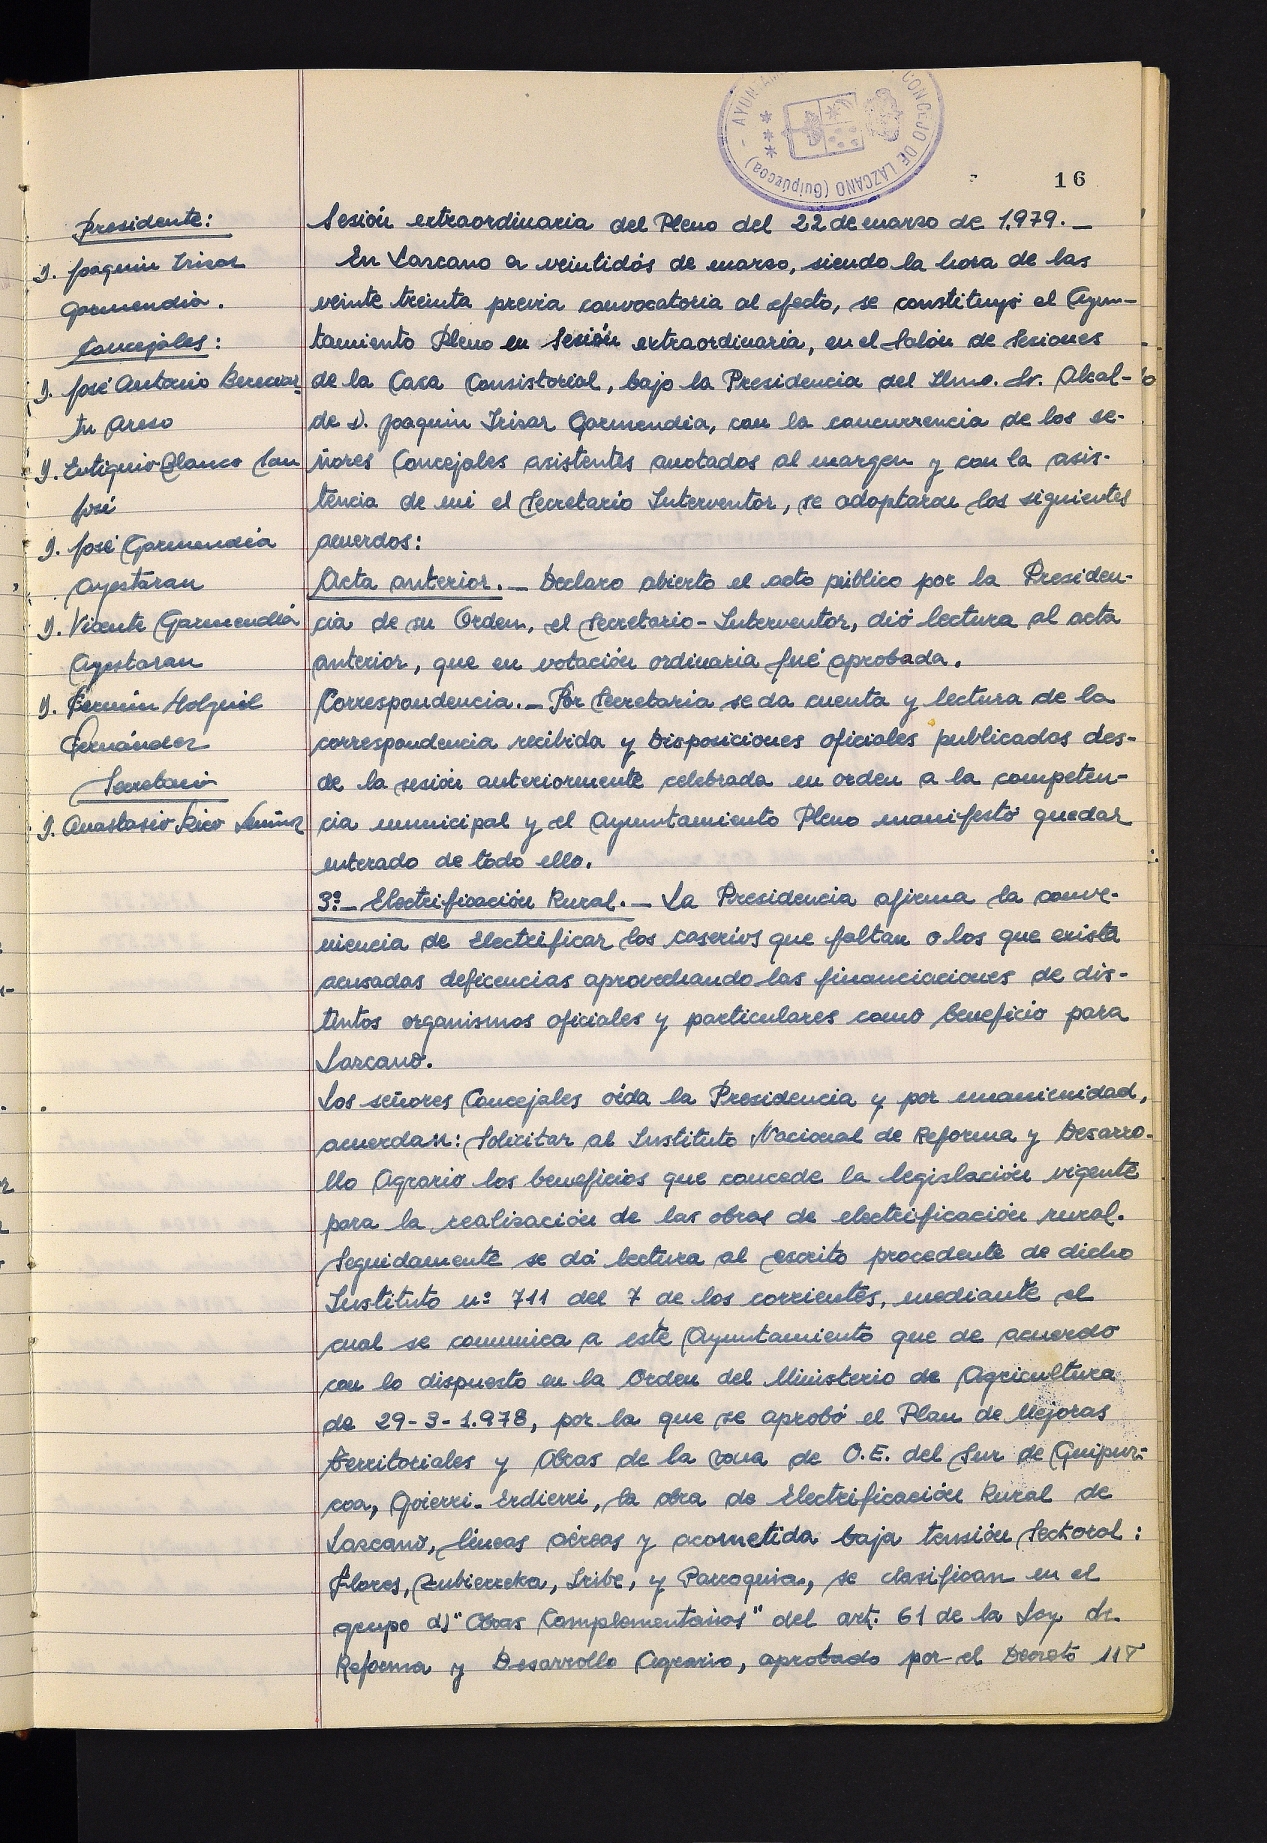 AYUNTAM CONCEJO DE LAZCANO (Guipúzcoa)
16
Presidente:
D. Joaquin Irizar
Garmendia.
Concejales:
D. José Antonio Bereciar-
tu Areso
D. Eutiquio Blanco San
José
D. José Garmendia
Ayestaran
D. Vicente Garmendia
Ayestaran
D. Fermin Holguil
Fernández
Secretario
D. Anastasio Rico
Sesión extraordinaria del Pleno del 22 de marzo de 1.979.—
En Lazcano a veintidós de marzo, siendo la hora de las
veinte treinta previa convocatoria al efecto, se constituyó el Ayun-
tamiento Pleno en Sesión extraordinaria, en el Salón de Sesiones
de la Casa Consistorial, bajo la Presidencia del Ilmo. Sr. Alcal-
de D. Joaquin Irizar Garmendia, con la concurrencia de los se-
ñores Concejales asistentes anotados al margen y con la asis-
tencia de mi el Secretario Interventor, se adoptaron los siguientes
acuerdos:
Acta anterior.— Declaro abierto el acto público por la Presiden-
cia de su Orden, el Secretario-Interventor, dió lectura al acta
anterior, que en votación ordinaria fué aprobada.
Correspondencia.— Por Secretaria se da cuenta y lectura de la
correspondencia recibida y Disposiciones oficiales publicadas des-
de la sesión anteriormente celebrada en orden a la competen-
cia municipal y el Ayuntamiento Pleno manifestó quedar
enterado de todo ello.
3º.— Electrificación Rural.— La Presidencia afirma la conve-
niencia de Electrificar los caserios que faltan o los que exista
acusadas deficencias aprovechando las financiaciones de dis-
tintos organismos oficiales y particulares como beneficio para
Lazcano.
Los señores Concejales oída la Presidencia y por unanimidad,
acuerdan: Solicitar al Instituto Nacional de Reforma y Desarro-
llo Agrario los beneficios que concede la legislación vigente
para la realización de las obras de electrificación rural.
Seguidamente se dá lectura al escrito procedente de dicho
Instituto nº 711 del 7 de los corrientes, mediante el
cual se comunica a este Ayuntamiento que de acuerdo
con lo dispuesto en la Orden del Ministerio de Agricultura
de 29-3-1.978, por la que se aprobó el Plan de Mejoras
territoriales y Obras de la zona de O.E. del Sur de Guipuz-
coa, Goierri-Erdierri, la obra de Electrificación Rural de
Lazcano, líneas aéreas y acometida baja tensión Sectoral:
Flores, Zubierreka, Iribe, y Parroquia, se clasifican en el
grupo d) "Obras Complementarias" del art. 61 de la Ley de
Reforma y Desarrollo Agrario, aprobado por el Decreto 118